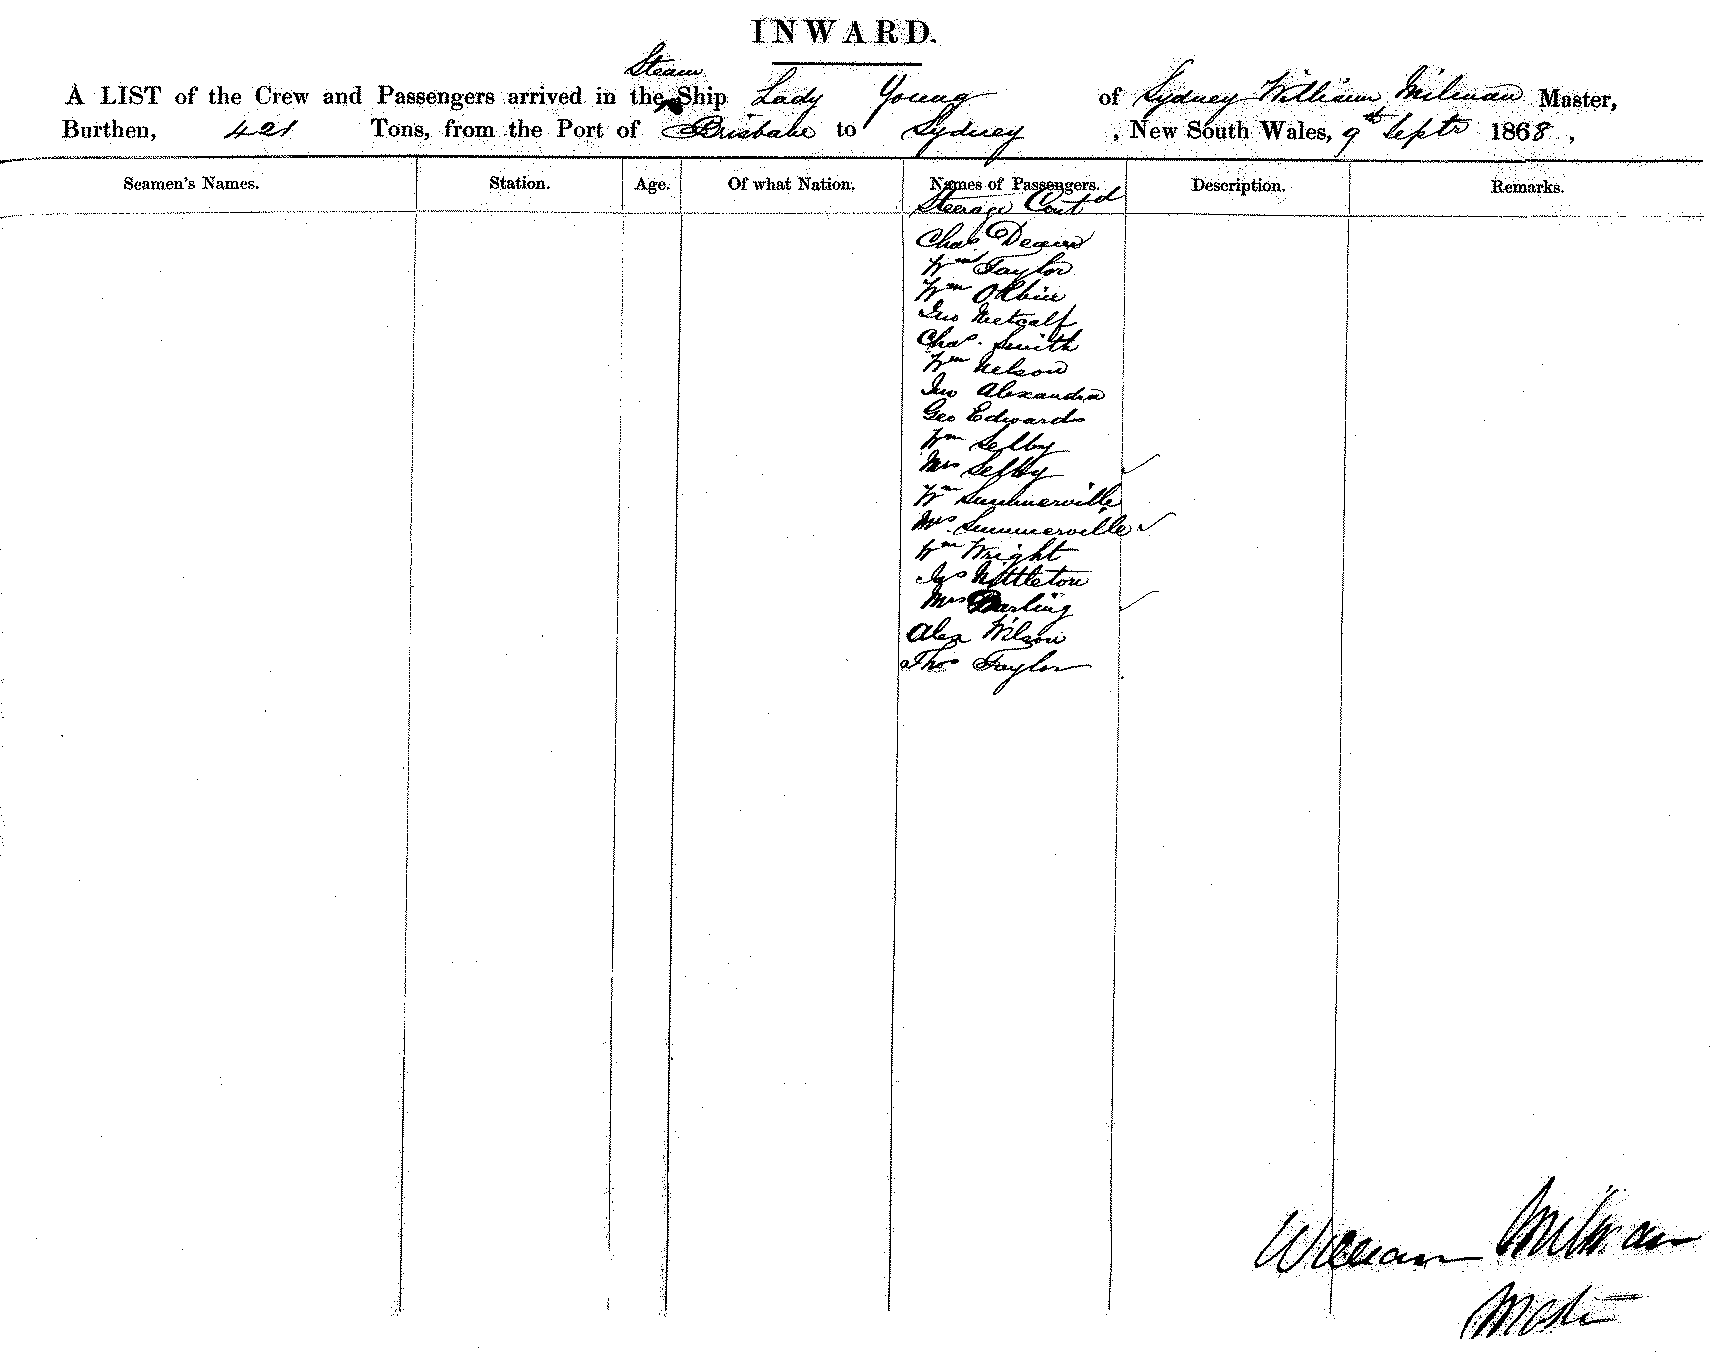 INWARD.
Steam
A LIST of the Crew and Passengers arrived in the Ship Lady Young of Sydney William Milman Master,
Burthen, 421 Tons, from the Port of Brisbane to Sydney, New South Wales, 9th Septr 1868,
Seamen's Names. Station. Age. Of what Nation. Names of Passengers. Description. Remarks.
Steerage Contd
Chas
Wm Taylor
Wm
Jno Metcalf
Chas. Smith
Wm Nelson
Jno Alexandra
Geo Edwards
Wm Selby
Mrs Selby
Wm Summerville
Mrs Summerville
Wm Wright
Nettleton
Mrs Darling
Alex Wilson
Thos Taylor
William Milman
Master